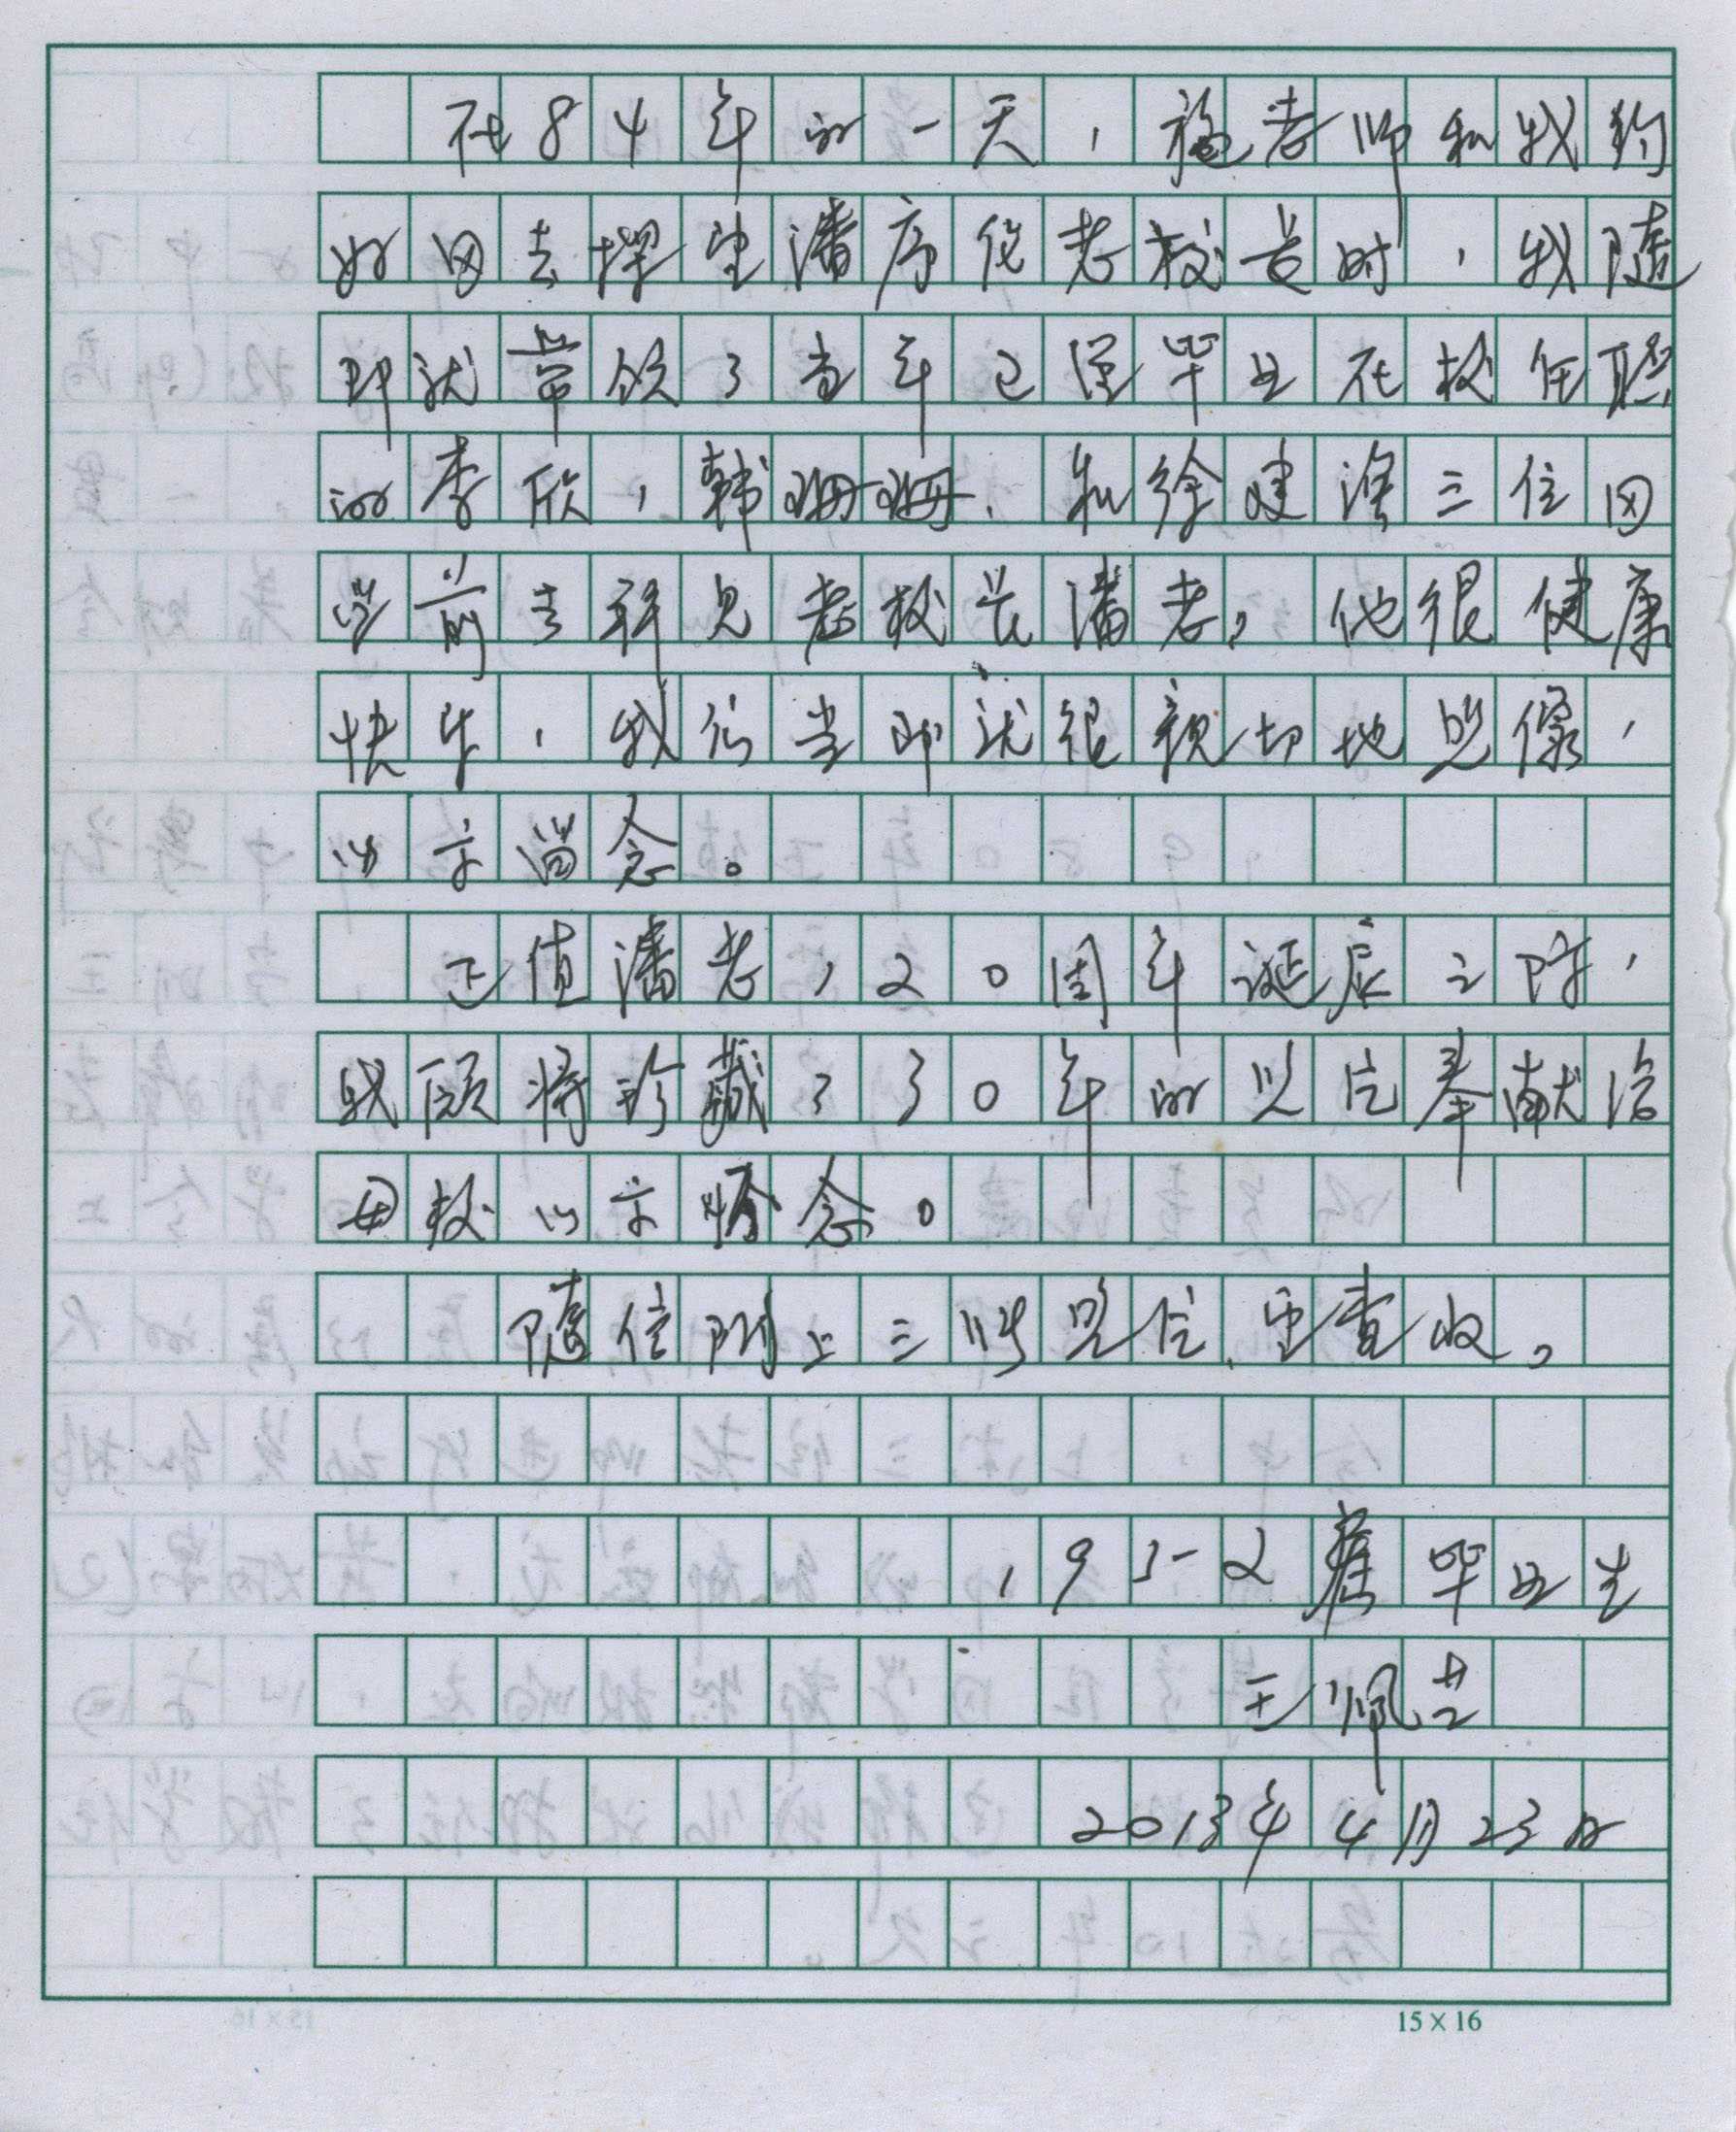 在84年的一天，施老师和我约
好同去探望潘序伦老校长时，我随
即就带领了当年已经毕业在校任职
的李欣，韩姗姗、和徐建漢三位同
学前去拜见老校长潘老，他很健康
快乐，我们当即就很亲切地照像，
以示留念。
正值潘老120周年诞辰之际，
我愿将珍藏了30年的照片奉献给
母校以示怀念。
随信附上三张照片、望查收。
1952届毕业生
王佩芸
2013年4月23日
15×16